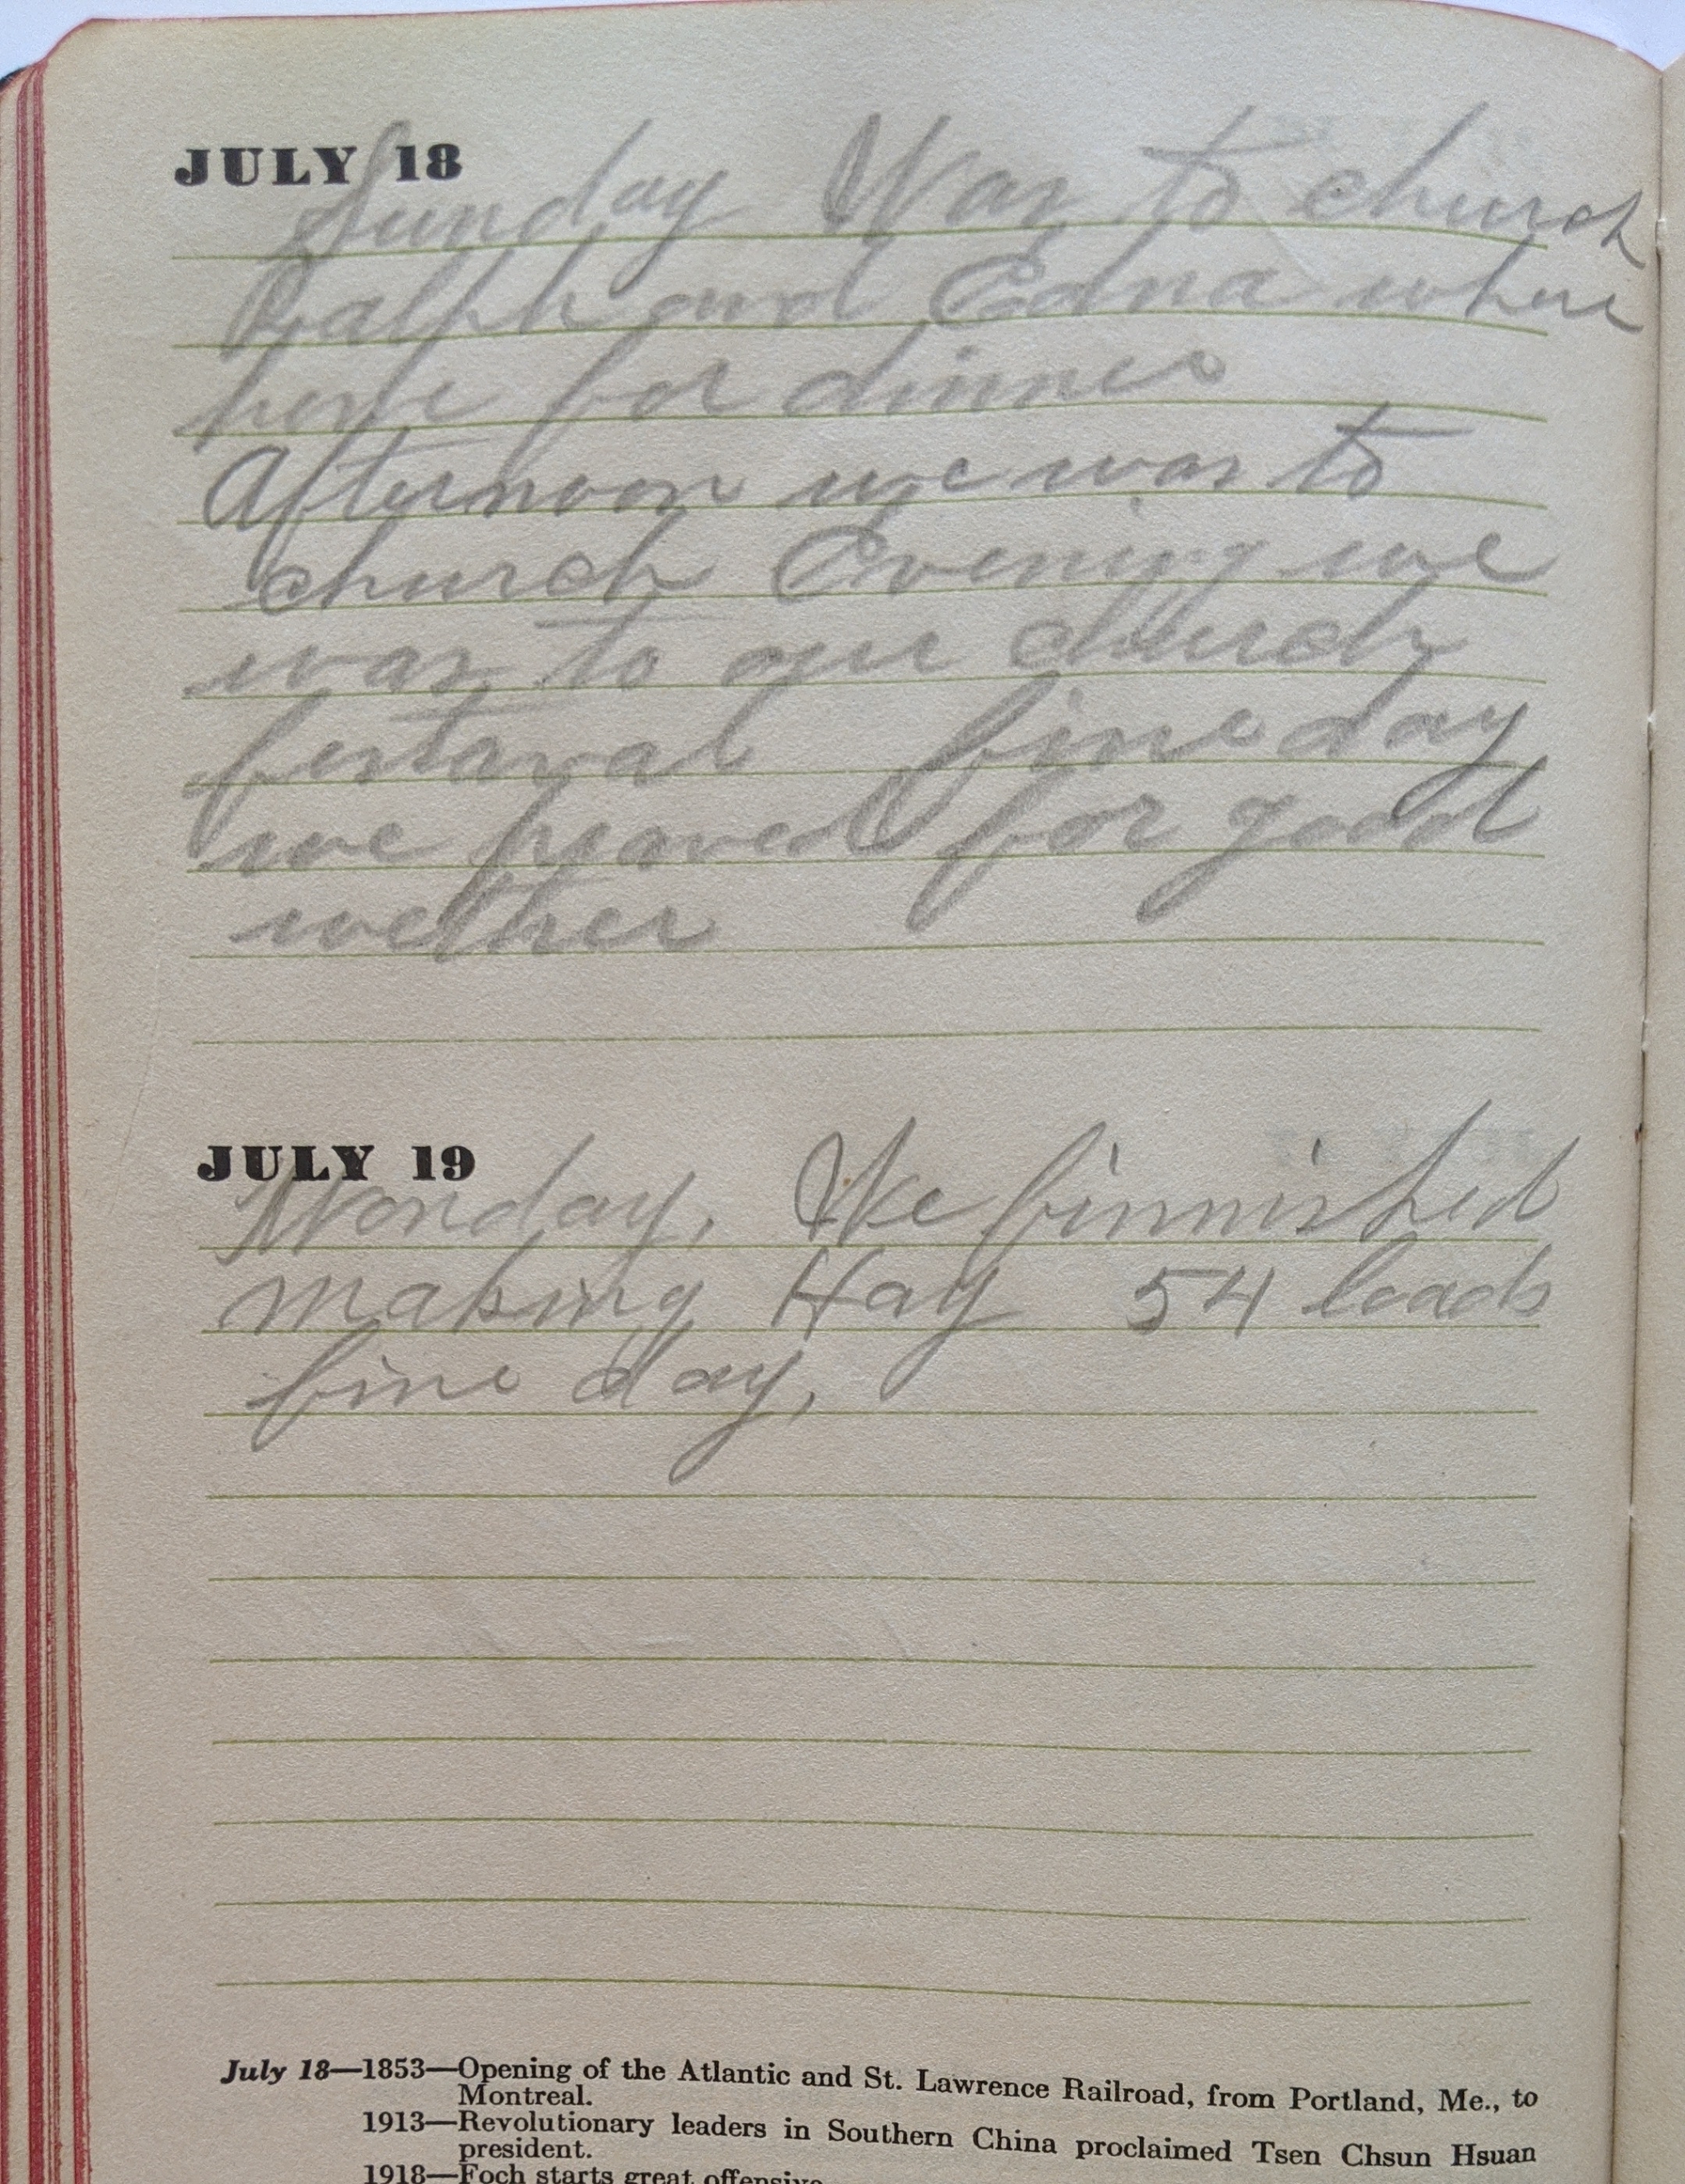 JULY 18
Sunday Was to church
Ralph and Edna where
here for dinner
Afternoon we was to
church Evening we
was to our church
festaval fine day
we prayed for good
wether
JULY 19
Monday, We finnished
making Hay 54 loads
fine day,
July 18—1853—Opening of the Atlantic and St. Lawrence Railroad, from Portland, Me., to
Montreal.
1913—Revolutionary leaders in Southern China proclaimed Tsen Chsun Hsuan
president.
1918—Foch starts great offensive.